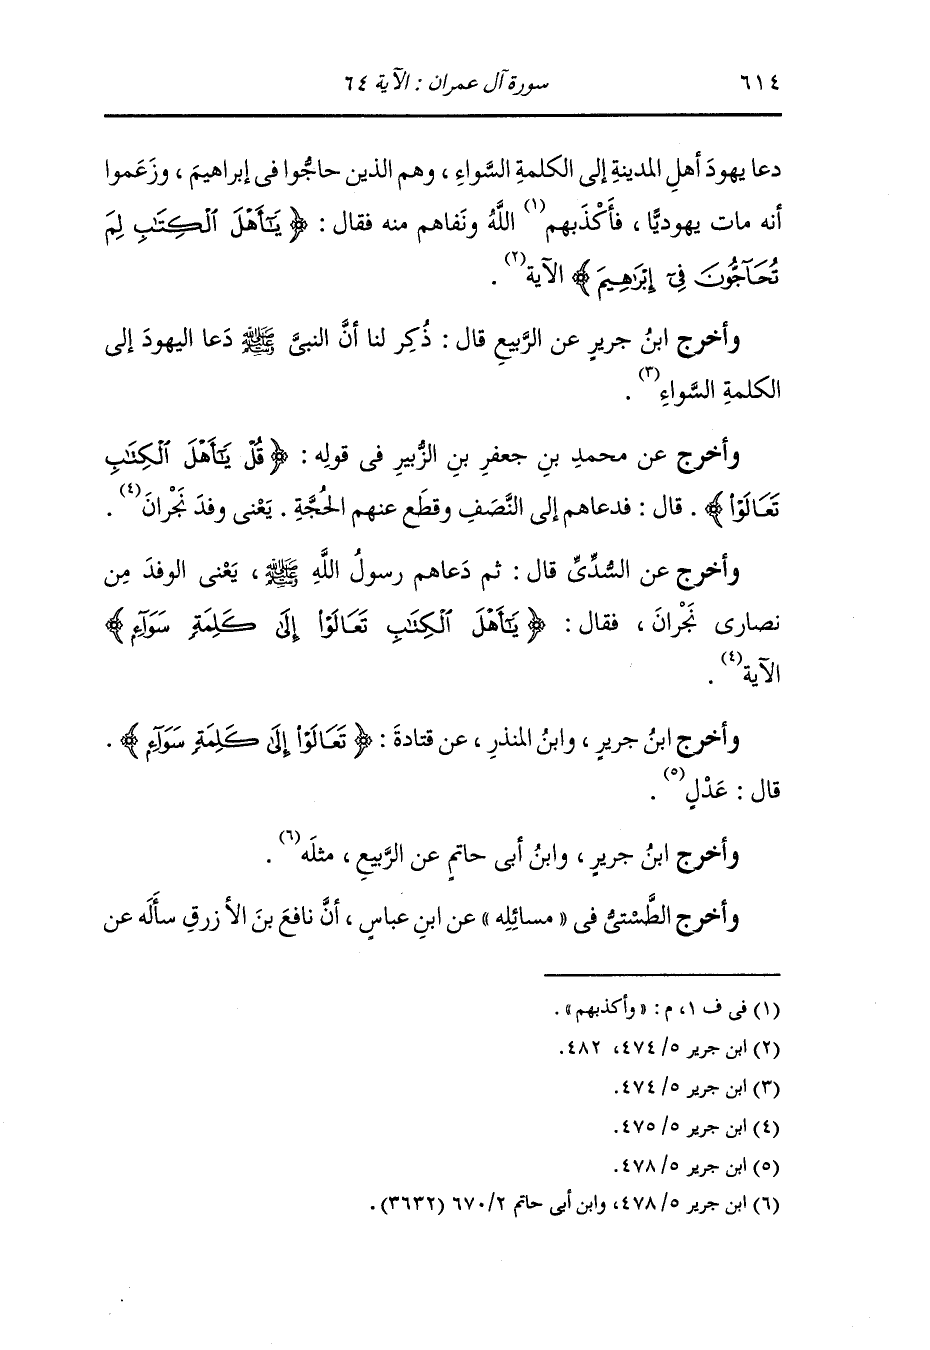 ٦١٤ سورة آل عمران : الآية ٦٤
دعا يهودَ أهلِ المدينةِ إلى الكلمةِ السَّواءِ ، وهم الذين حاجُّوا فى إبراهيمَ ، وزَعَموا
أنه مات يهوديًّا ، فأَكْذَبهم(١) اللَّهُ ونَفاهم منه فقال : ﴿ يَٰٓأَهۡلَ ٱلۡكِتَٰبِ لِمَ
تُحَآجُّونَ فِىٓ إِبۡرَٰهِيمَ ﴾ الآية(٢) .
وأخرج ابنُ جريرٍ عن الرَّبيعِ قال : ذُكِر لنا أنَّ النبىَّ ﷺ دَعا اليهودَ إلى
الكلمةِ السَّواءِ(٣) .
وأخرج عن محمدِ بنِ جعفرِ بنِ الزُّبيرِ فى قولِه : ﴿ قُلۡ يَٰٓأَهۡلَ ٱلۡكِتَٰبِ
تَعَالَوۡاْ ﴾ . قال : فدعاهم إلى النَّصَفِ وقطَع عنهم الحُجَّةِ . يَعْنى وفدَ نَجْرانَ(٤) .
وأخرج عن السُّدِّىِّ قال : ثم دَعاهم رسولُ اللَّهِ ﷺ ، يَعْنى الوفدَ مِن
نصارى نَجْرانَ ، فقال : ﴿ يَٰٓأَهۡلَ ٱلۡكِتَٰبِ تَعَالَوۡاْ إِلَىٰ كَلِمَةٖ سَوَآءِۭ ﴾
الآية(٤) .
وأخرج ابنُ جريرٍ ، وابنُ المنذرِ ، عن قتادةَ : ﴿ تَعَالَوۡاْ إِلَىٰ كَلِمَةٖ سَوَآءِۭ ﴾ .
قال : عَدْلٍ(٥) .
وأخرج ابنُ جريرٍ ، وابنُ أبى حاتمٍ عن الرَّبيعِ ، مثلَه(٦) .
وأخرج الطَّسْتىُّ فى « مسائِلِه » عن ابنِ عباسٍ ، أنَّ نافعَ بنَ الأزرقِ سأَلَه عن
(١) فى ف ١، م : « وأكذبهم » .
(٢) ابن جرير ٥/ ٤٧٤، ٤٨٢.
(٣) ابن جرير ٥/ ٤٧٤.
(٤) ابن جرير ٥/ ٤٧٥.
(٥) ابن جرير ٥/ ٤٧٨.
(٦) ابن جرير ٥/ ٤٧٨، وابن أبى حاتم ٢/ ٦٧٠ (٣٦٣٢) .